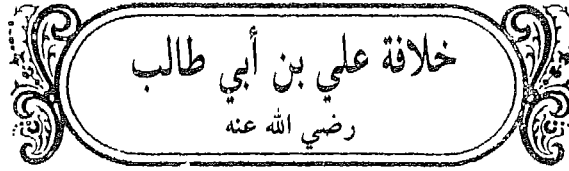 خلافة علي بن أبي طالب
رضي الله عنه